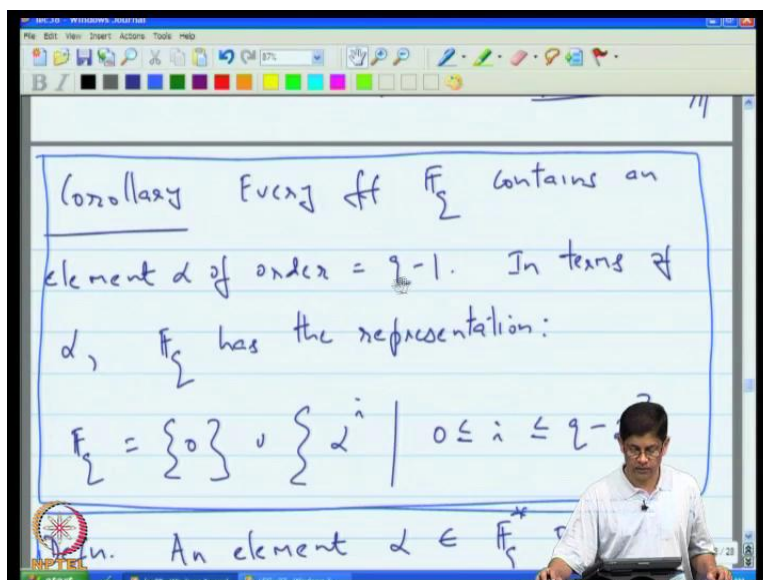 Windows Journal
File Edit View Insert Actions Tools Help
87%
B I
Corollary Every ff F_q contains an
element α of order = q-1. In terms of
α, F_q has the representation:
F_q = {0} ∪ {α^i | 0 ≤ i ≤ q-
Defn. An element α ∈ F_q^*
/ 28
NPTEL
start